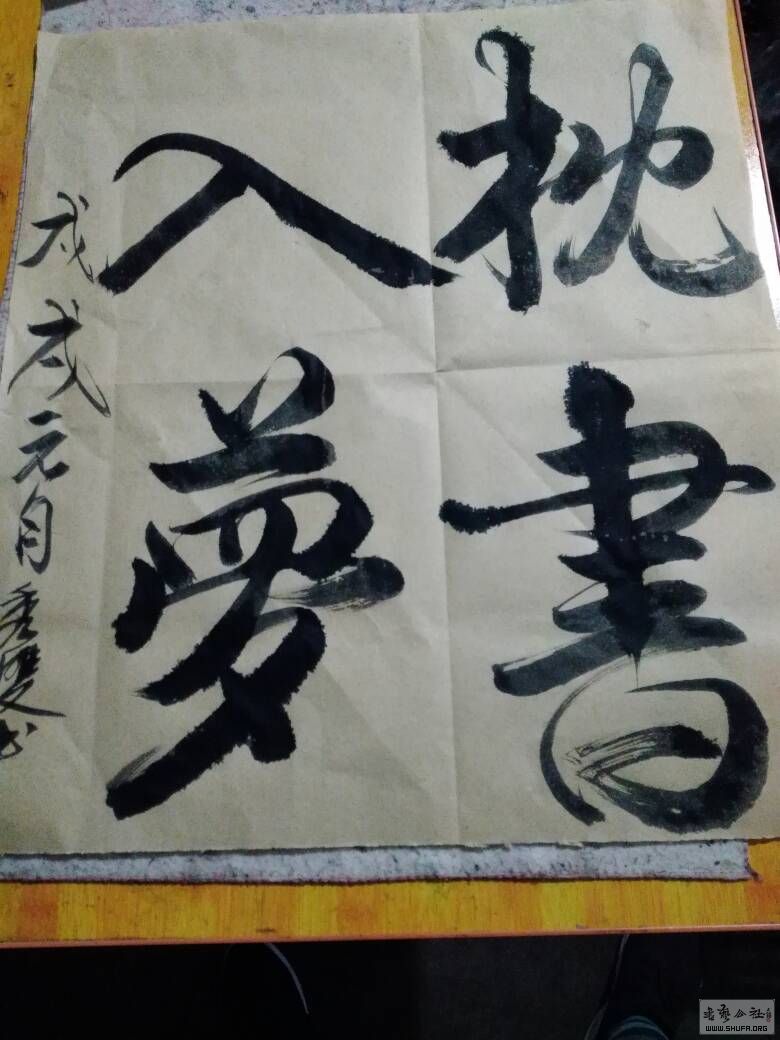 枕書
入夢
戊戌元月秀雙书
書藝公社
WWW.SHUFA.ORG